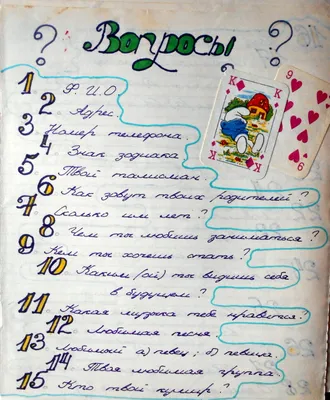 ? Вопросы ?
1 Ф. И. О.
2 Адрес.
3 Номер телефона.
4 Знак зодиака
5 Твой талисман.
6 Как зовут твоих родителей?
7 Сколько им лет?
8 Чем ты любишь заниматься?
9 Кем ты хочешь стать?
10 Каким (ой) ты видишь себя
в будущем?
11 Какая музыка тебе нравится?
12 Любимая песня.
13 Любимый а) певец; б) певица.
14 Твоя любимая группа.
15 Кто твой кумир?
K
K
9
6